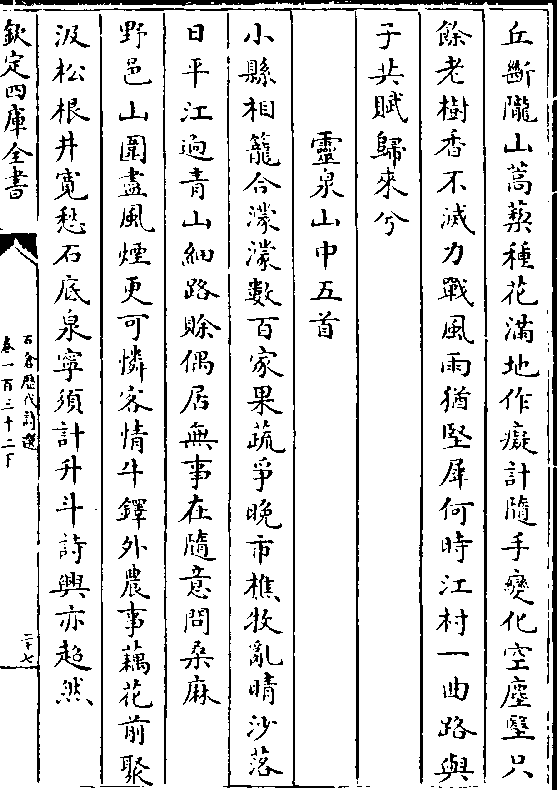 丘斷隴山蒿蘓種花滿地作癡計隨手變化空塵堅只
餘老樹香不滅力戰風雨猶堅犀何時江村一曲路與
子共賦歸來兮
靈泉山中五首
小縣相籠合濛濛數百家果蔬爭晚市樵牧亂晴沙落
日平江逈青山細路賒偶居無事在隨意問桑麻
野邑山圍盡風煙更可憐客情斗鐸外農事藕花前聚
汲松根井寛愁石底泉寧須計升斗詩興亦超然
欽定四庫全書
石倉歴代詩選
卷一百三十二下
二十七